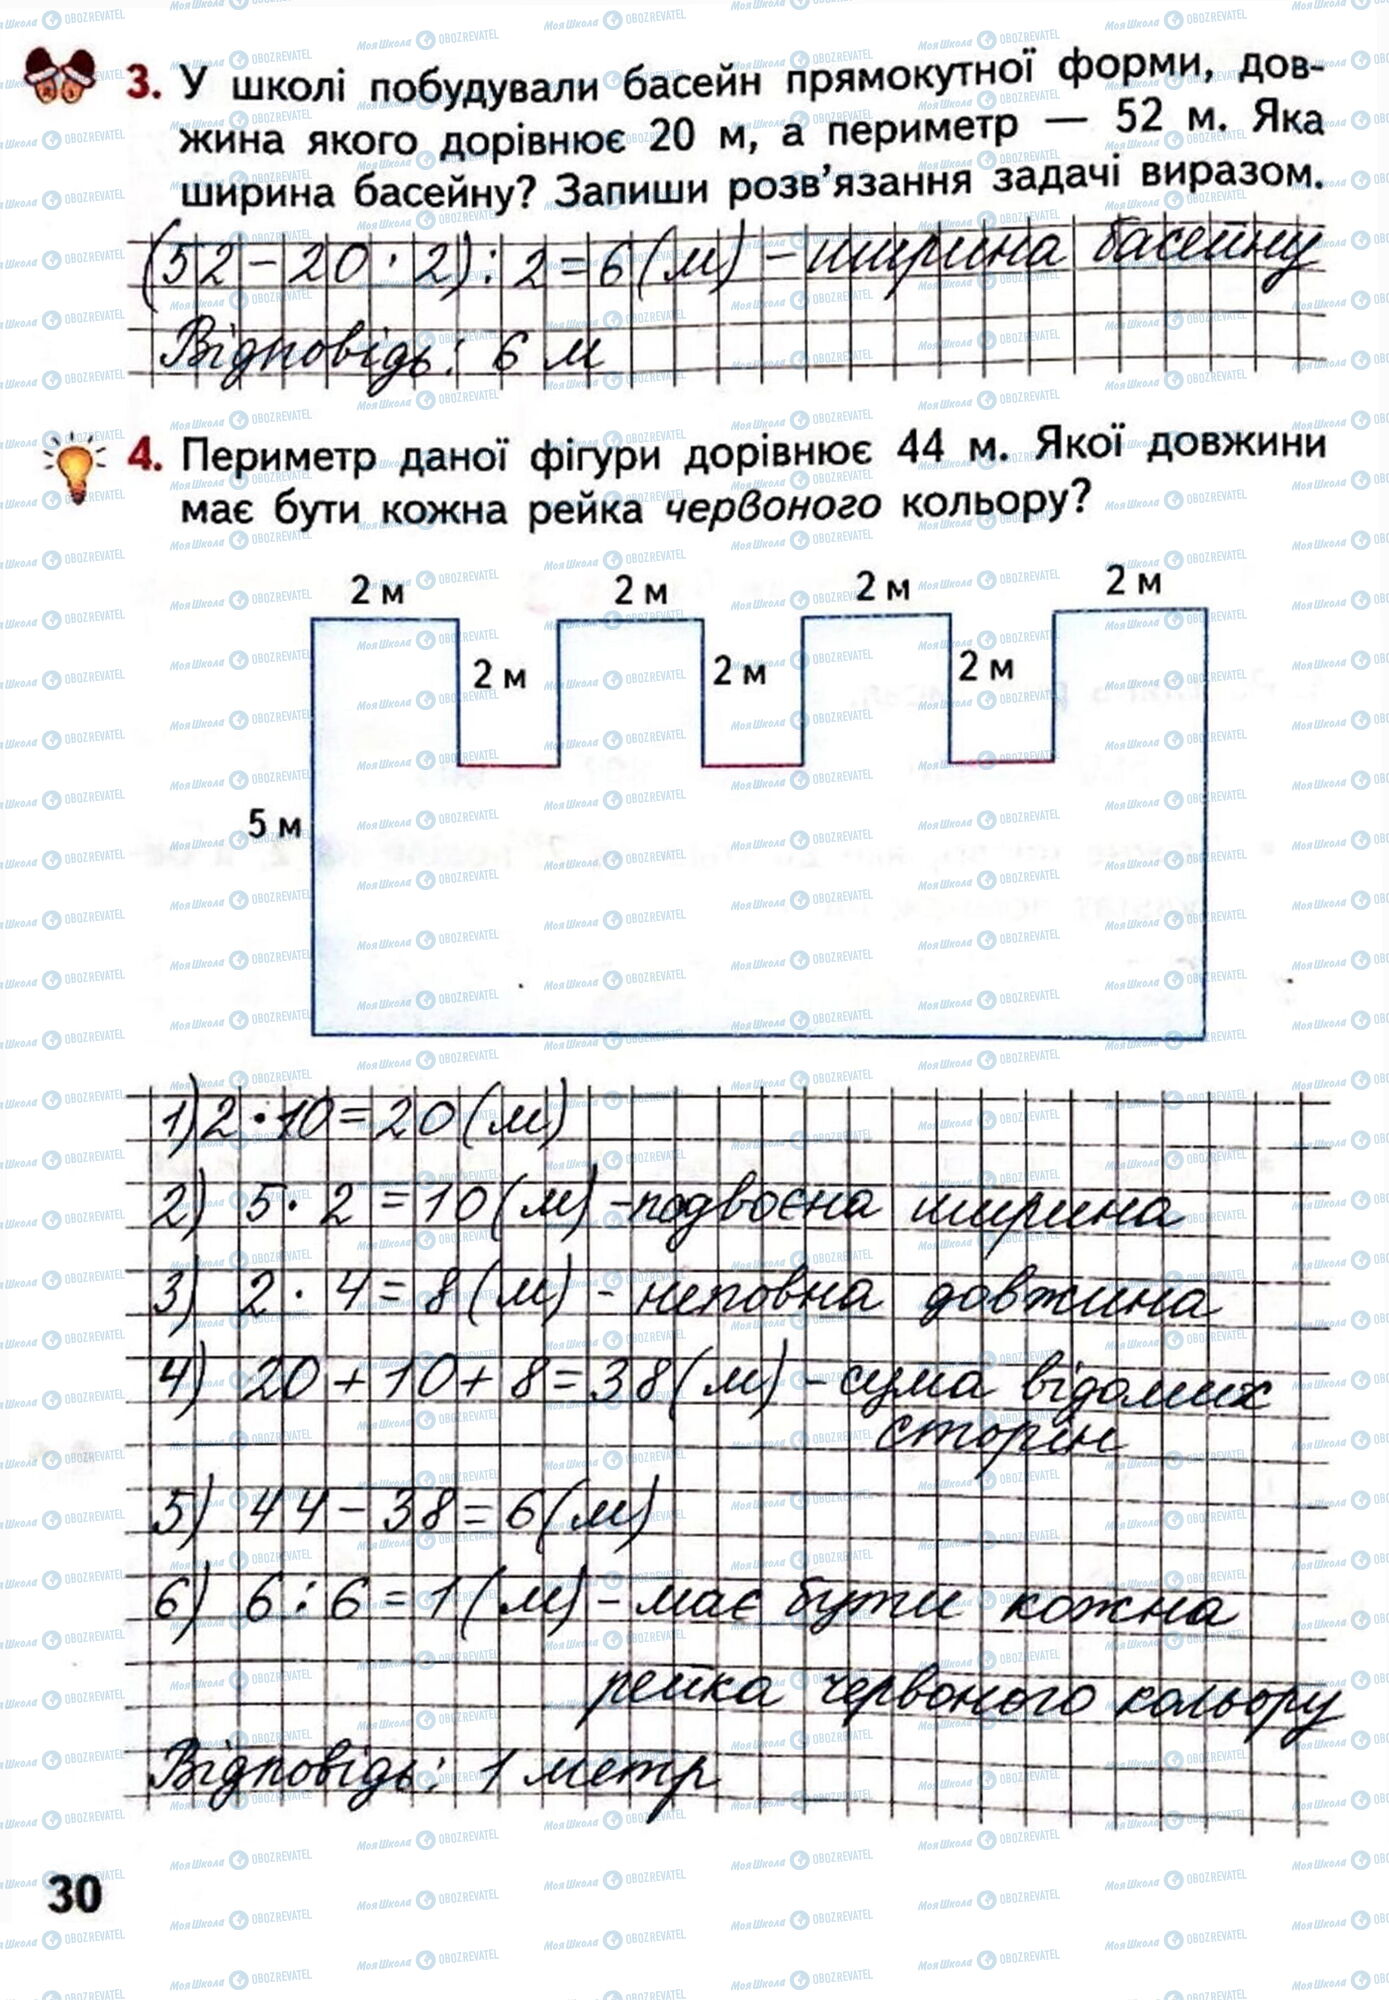 3. У школі побудували басейн прямокутної форми, дов-
жина якого дорівнює 20 м, а периметр — 52 м. Яка
ширина басейну? Запиши розв'язання задачі виразом.
(52 - 20 · 2) : 2 = 6 (м) - ширина басейну
Відповідь: 6 м
4. Периметр даної фігури дорівнює 44 м. Якої довжини
має бути кожна рейка червоного кольору?
2 м 2 м 2 м 2 м
2 м 2 м 2 м
5 м
1) 2 · 10 = 20 (м)
2) 5 · 2 = 10 (м) - подвоєна ширина
3) 2 · 4 = 8 (м) - неповна довжина
4) 20 + 10 + 8 = 38 (м) - сума відомих
сторін
5) 44 - 38 = 6 (м)
6) 6 : 6 = 1 (м) - має бути кожна
рейка червоного кольору
Відповідь: 1 метр
30
Моя Школа OBOZREVATEL